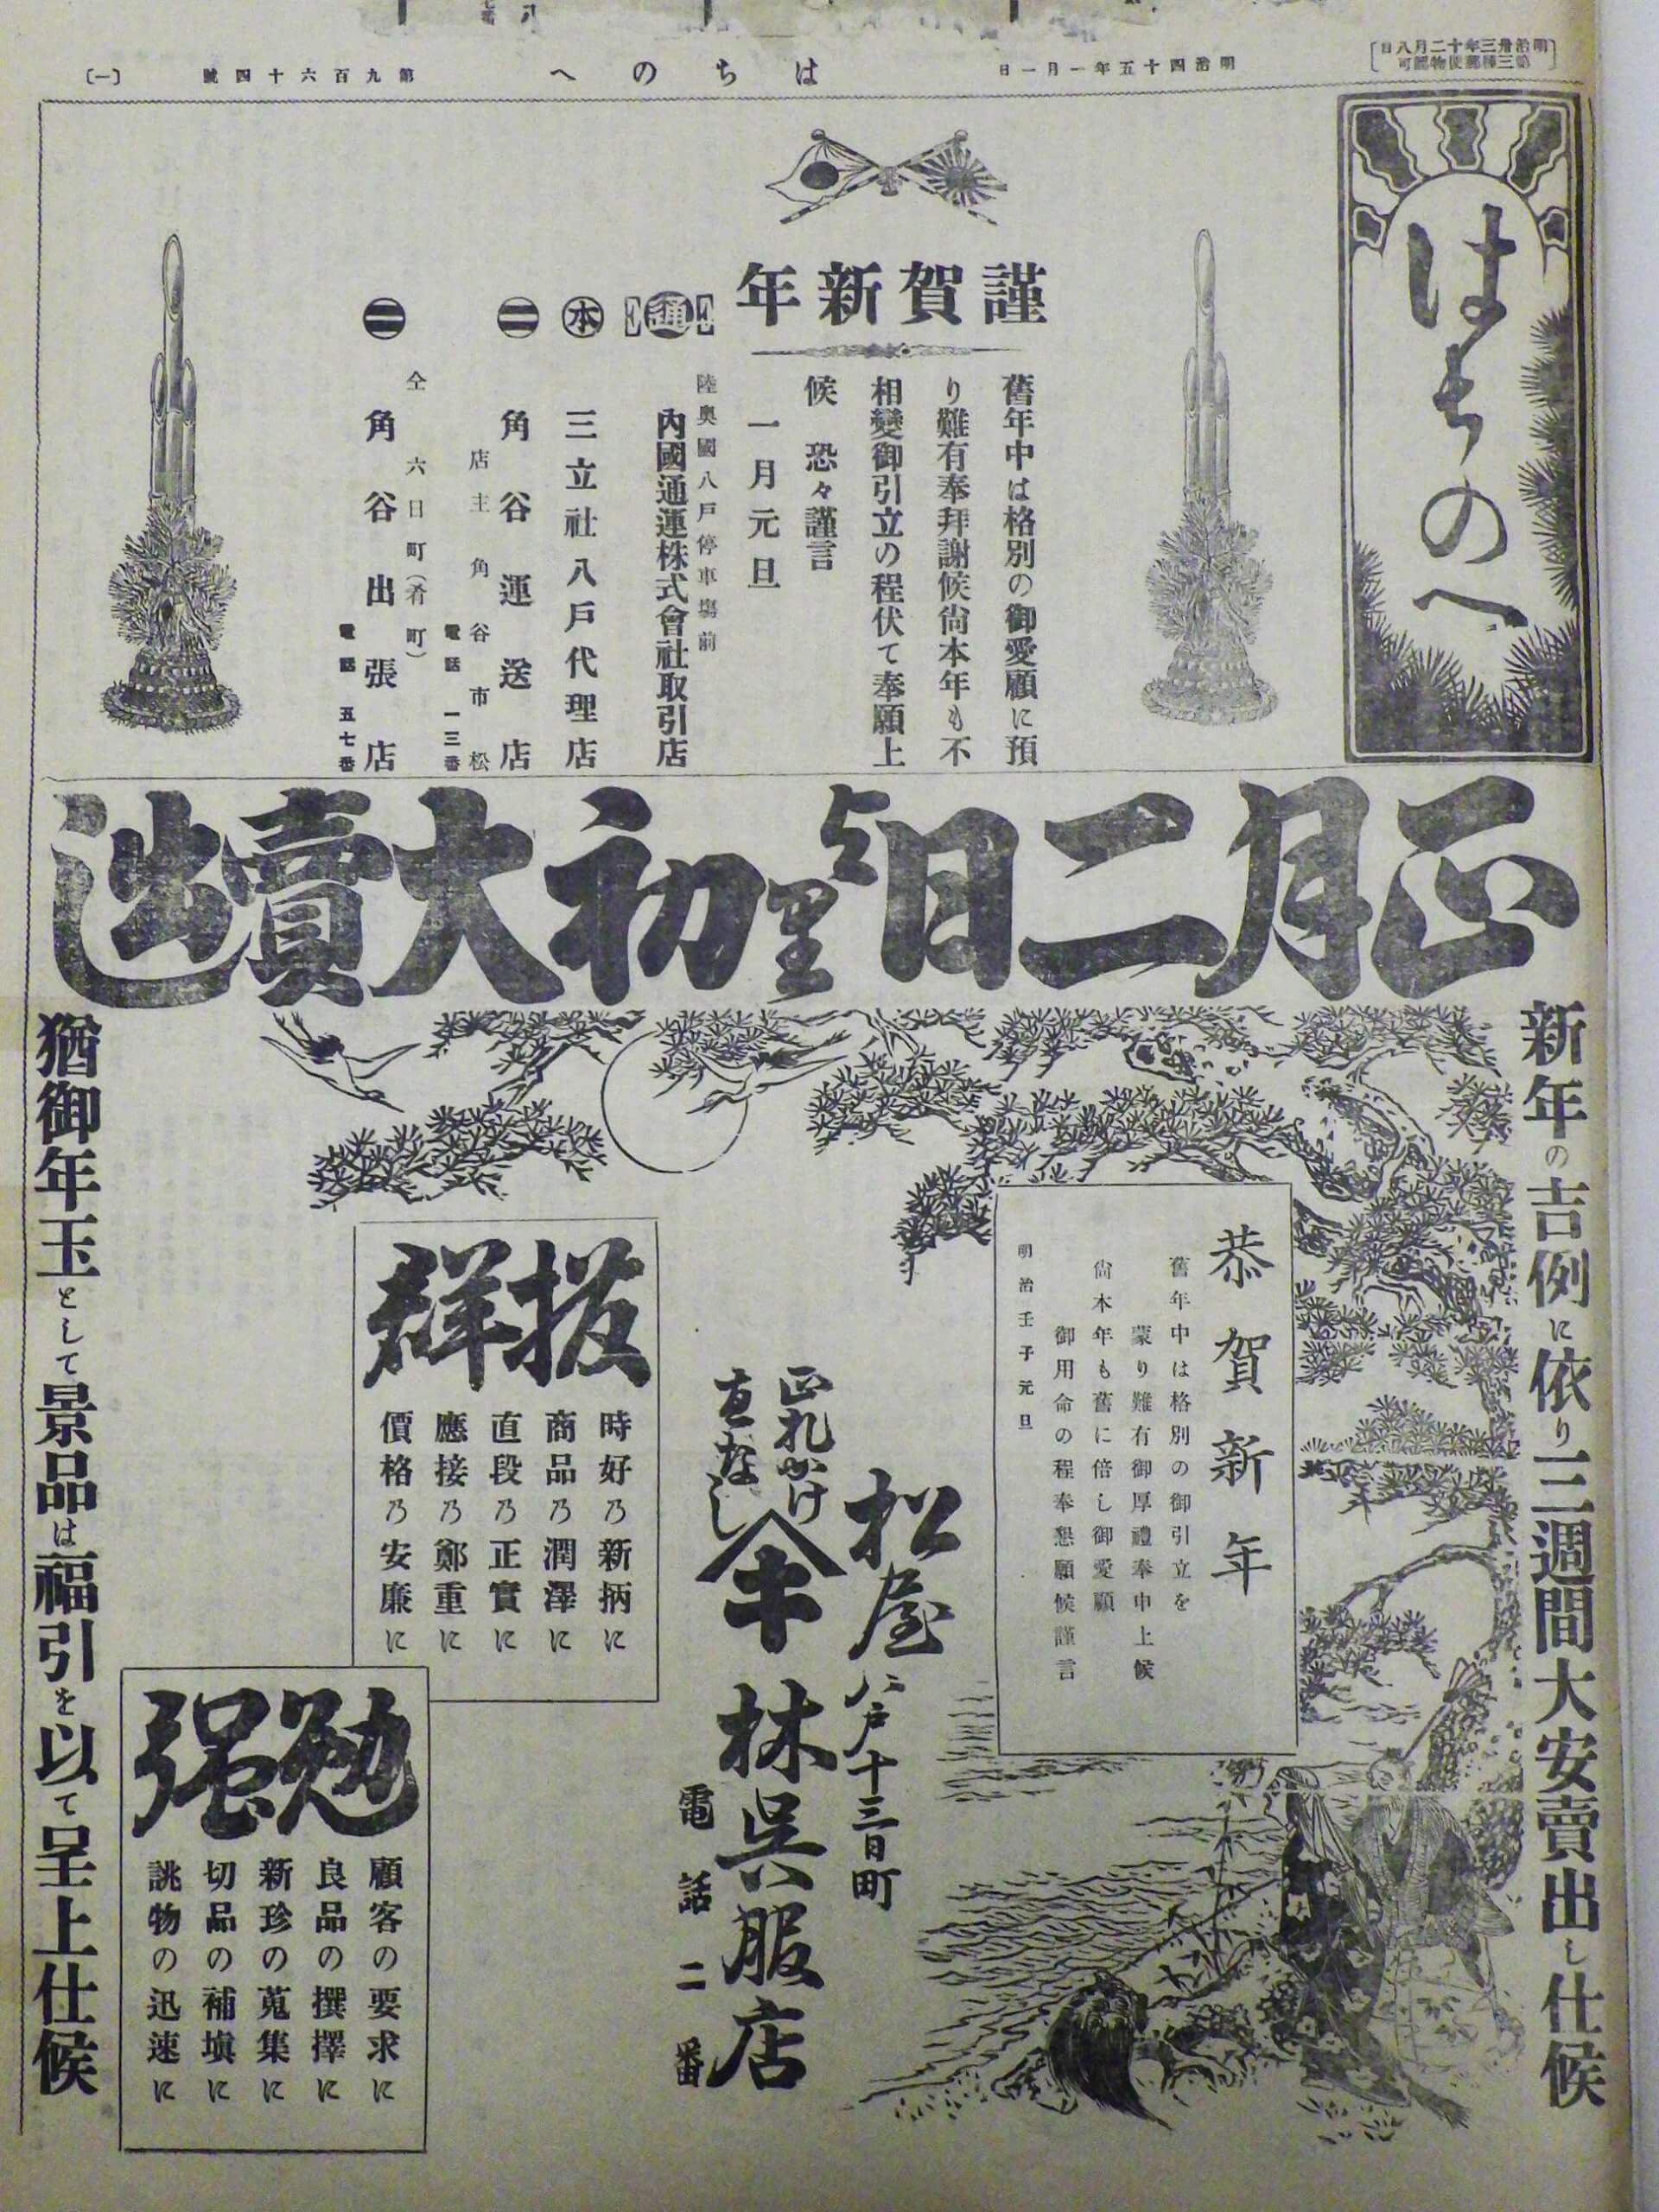 明治卅三年十二月八日
第三種郵便物認可
明治四十五年一月一日
はちのへ
第九百六十四號
(一)
はちのへ
謹賀新年
舊年中は格別の御愛顧に預
り難有奉拜謝候尙本年も不
相變御引立の程伏て奉願上
候 恐々謹言
一月元旦
陸奥國八戸停車塲前
通
內國通運株式會社取引店
本
三立社八戸代理店
角谷運送店
店主 角谷市松
電話 一三番
仝 六日町(肴町)
角谷出張店
電話 五七番
正月二日より初大賣出
新年の吉例に依り三週間大安賣出し仕候
恭賀新年
舊年中は格別の御引立を
蒙り難有御厚禮奉申上候
尙本年も舊に倍し御愛顧
御用命の程奉懇願候謹言
明治壬子元旦
松屋
八戸十三日町
正札かけ
直なし
林呉服店
電話二番
拔群
時好乃新柄に
商品乃潤澤に
直段乃正實に
應接乃鄭重に
價格乃安廉に
勉强
顧客の要求に
良品の撰擇に
新珍の蒐集に
切品の補塡に
誂物の迅速に
猶御年玉として景品は福引を以て呈上仕候